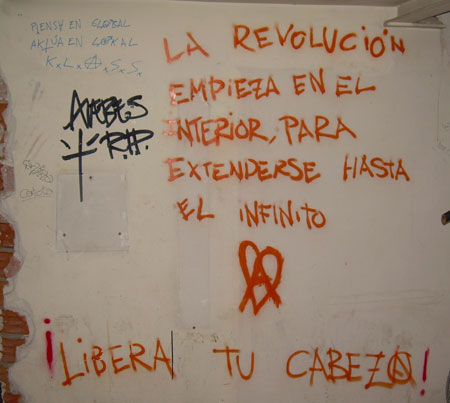 PIENSA EN GLOBAL
AKTÚA EN LOCAL
K.L.A.S.S.
R.I.P.
LA REVOLUCIÓN
EMPIEZA EN EL
INTERIOR, PARA
EXTENDERSE HASTA
EL INFINITO
¡LIBERA TU CABEZA!